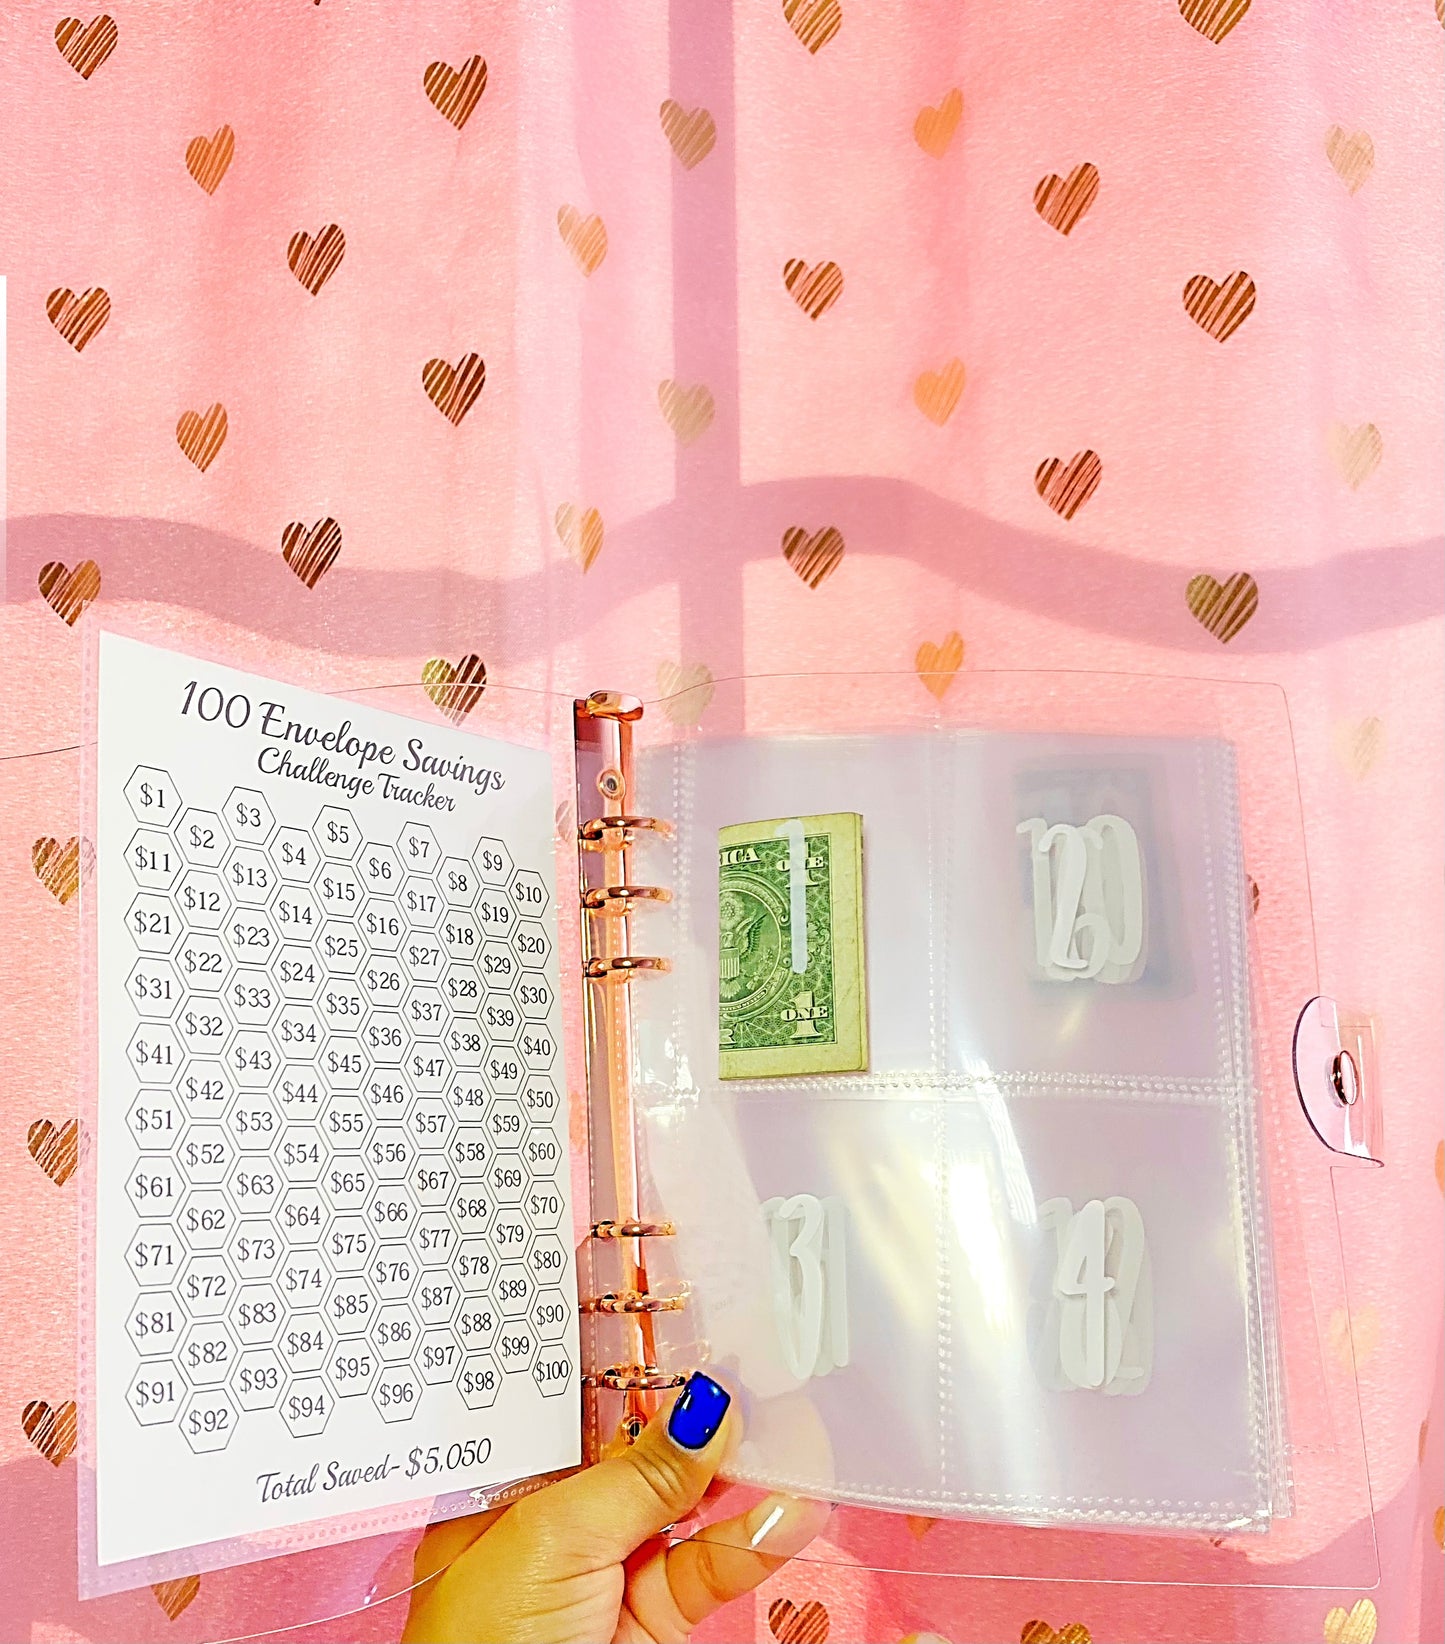 100 Envelope Savings
Challenge Tracker
$1 $2 $3 $4 $5 $6 $7 $8 $9 $10
$11 $12 $13 $14 $15 $16 $17 $18 $19 $20
$21 $22 $23 $24 $25 $26 $27 $28 $29 $30
$31 $32 $33 $34 $35 $36 $37 $38 $39 $40
$41 $42 $43 $44 $45 $46 $47 $48 $49 $50
$51 $52 $53 $54 $55 $56 $57 $58 $59 $60
$61 $62 $63 $64 $65 $66 $67 $68 $69 $70
$71 $72 $73 $74 $75 $76 $77 $78 $79 $80
$81 $82 $83 $84 $85 $86 $87 $88 $89 $90
$91 $92 $93 $94 $95 $96 $97 $98 $99 $100
Total Saved- $5,050
1
ICA
ONE
ONE
1
2
3
4